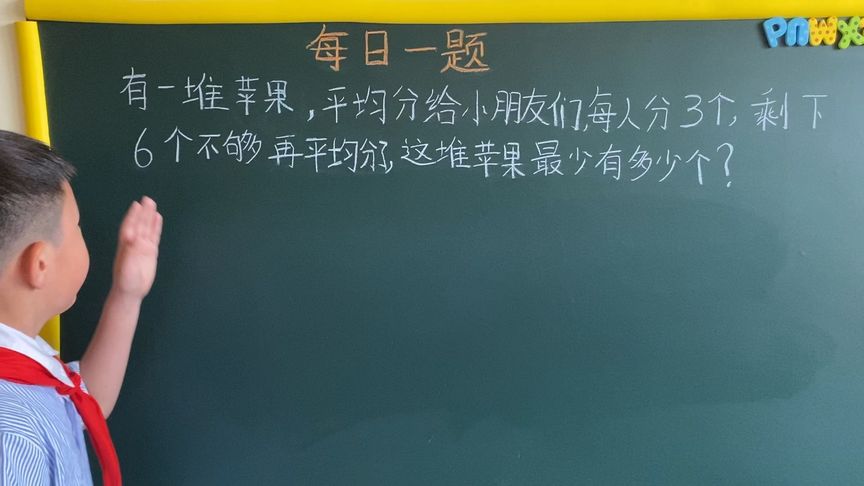 每日一题
有一堆苹果，平均分给小朋友们，每人分3个，剩下
6个不够再平均分了，这堆苹果最少有多少个？
PNWX